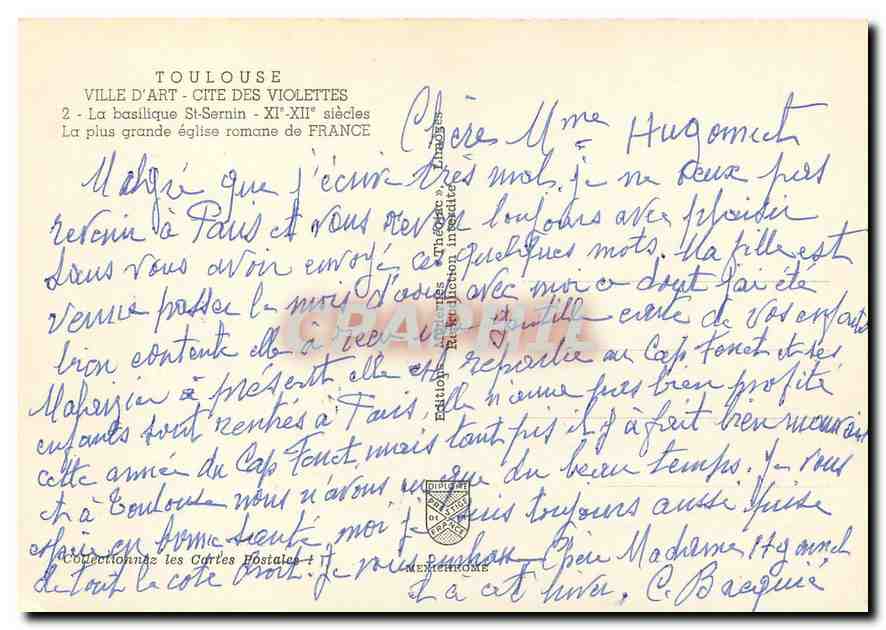 TOULOUSE
VILLE D'ART - CITE DES VIOLETTES
2 - La basilique St-Sernin - XIe-XIIe siècles
La plus grande église romane de FRANCE
Chère Mme
Malgré que j'écrive très mal, je ne veux pas
revenir à Paris et vous revoir toujours avec plaisir
sans vous avoir envoyé ces quelques mots. Ma fille est
venue passer le mois d'août avec moi ce dont j'ai été
bien contente elle à reçu une gentille carte de vos enfants
à présent elle est repartie au Cap Ferret et ses
enfants sont rentrés à Paris, elle n'a pas bien profité
cette année du Cap Ferret, mais tant pis il y à fait bien mauvais
et à Toulouse nous n'avons eu que du beau temps. Je vous
espère en bonne santé, moi je suis toujours aussi prise
de tout le côté droit. Je vous embrasse Chère Madame
et à cet hiver. C. Bacquié
Editions Modernes « Théojac », Limoges
Reproduction interdite
CPARAMA
DIPLOME
PRESTIGE
DE
FRANCE
Collectionnez les Cartes Postales !
MEXICHROME